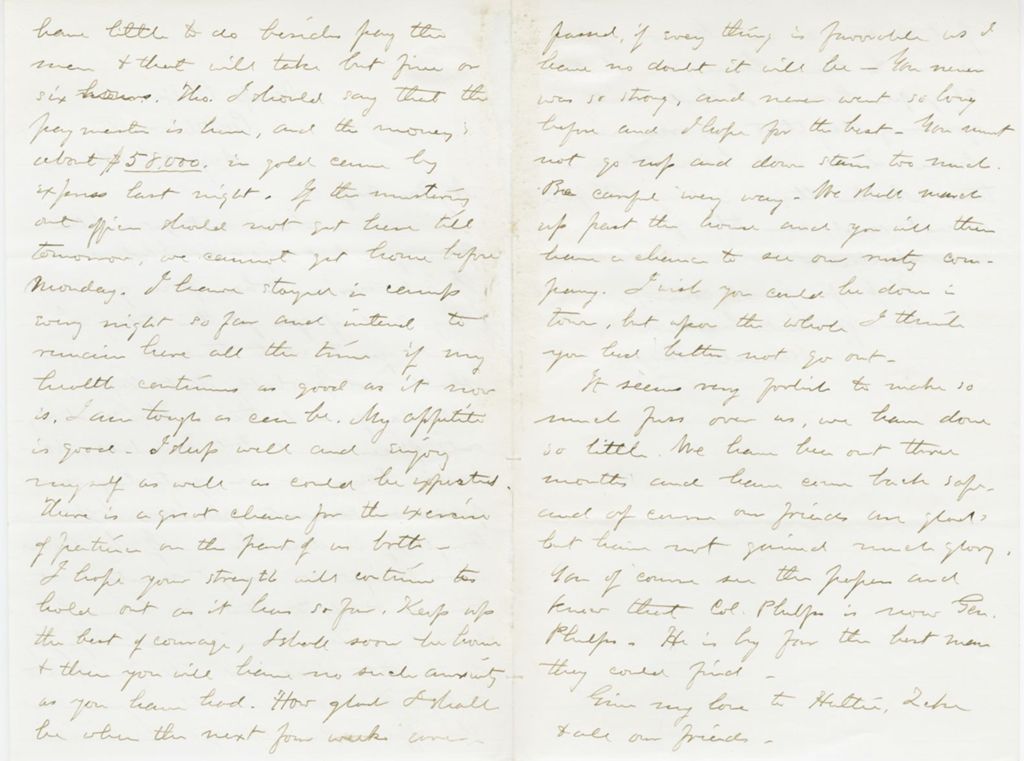 have little to do besides pay the
men & that will take but five or
six hours. Tho. I should say that the
paymaster is here, and the money,
about $58.000. in gold came by
express last night. If the mustering
out officer should not get here till
tomorrow, we cannot get home before
Monday. I have stayed in camp
every night so far and intend to
remain here all the time if my
health continues as good as it now
is. I am tough as can be. My appetite
is good - I sleep well and enjoy
myself as well as could be expected.
There is a great chance for the exercise
of patience on the part of us both -
I hope your strength will continue to
hold out as it has so far. Keep up
the best of courage, I shall soon be home
& then you will have no such anxiety
as you have had. How glad I shall
be when the next four weeks are
passed, if every thing is favorable as I
have no doubt it will be - You never
was so strong, and never went so long
before and I hope for the best - You must
not go up and down stairs too much.
Be careful every way - We shall march
up past the house and you will then
have a chance to see our rusty com-
pany. I wish you could be down in
town, but upon the whole I think
you had better not go out -
It seems very foolish to make so
much fuss over us, we have done
so little. We have been out three
months and have come back safe
and of course our friends are glad,
but have not gained much glory.
You of course see the papers and
know that Col. Phelps is now Gen.
Phelps. He is by far the best man
they could find -
Give my love to Hattie, Zeke
& all our friends -